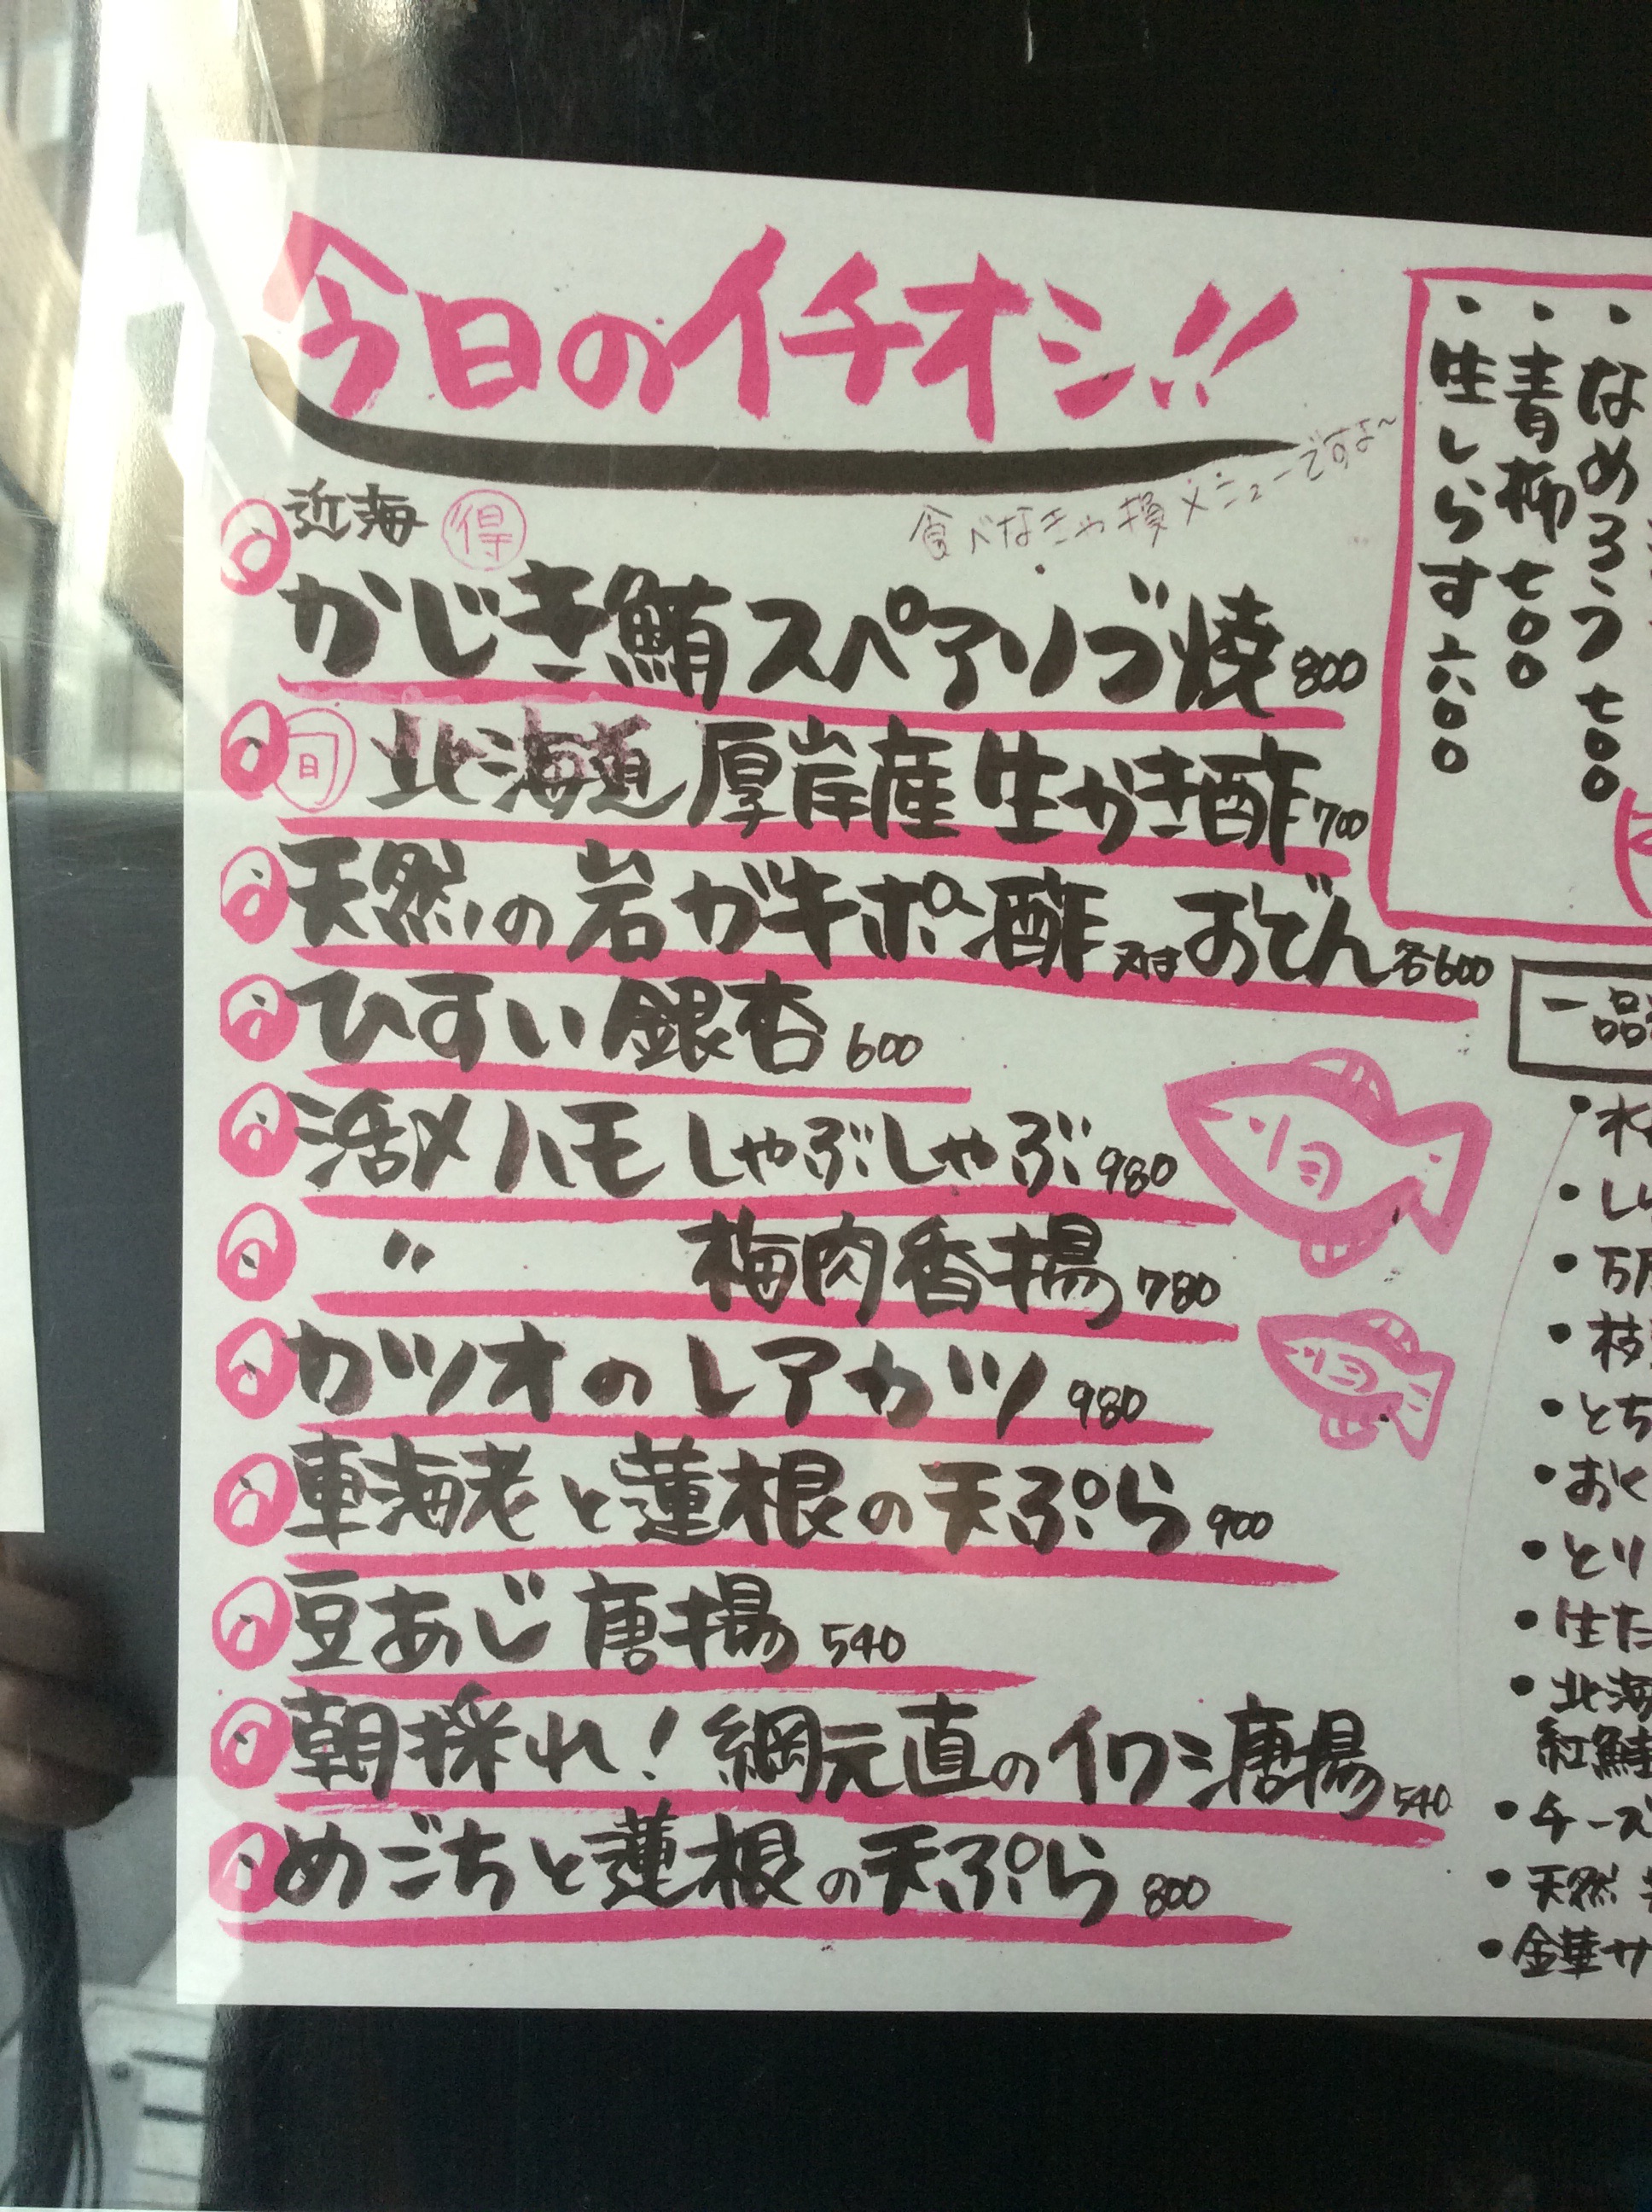 今日のイチオシ!!
食べなきゃ損メニューですよ~
近海 得
かじき鮪スペアリブ焼 800
旬 北海道厚岸産生がき酢 700
天然の岩ガキポン酢又はおでん各600
ひすい銀杏 600
活〆ハモしゃぶしゃぶ 980
〃 梅肉香揚 780
カツオのレアカツ 980
車海老と蓮根の天ぷら 900
豆あじ唐揚 540
朝採れ!網元直のイワシ唐揚 540
めごちと蓮根の天ぷら 800
旬
旬
・なめろう 七〇〇
・青柳 七〇〇
・生しらす 六〇〇
一品
・水
・し
・万
・枝
・とち
・おく
・とり
・生た
・北海
紅鮭
・チーズ
・天然
・金華サ